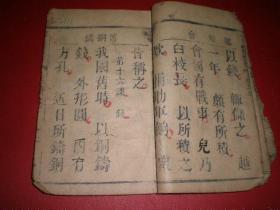 以錢 輒儲之 越
一年 頗有所積
會國有戰事 兒乃
白校長 以所積之
欵 捐助軍餉 衆
皆稱之
第十六課 錢
我國舊時 以銅鑄
錢 外形圓 內有
方孔 近日所鑄銅